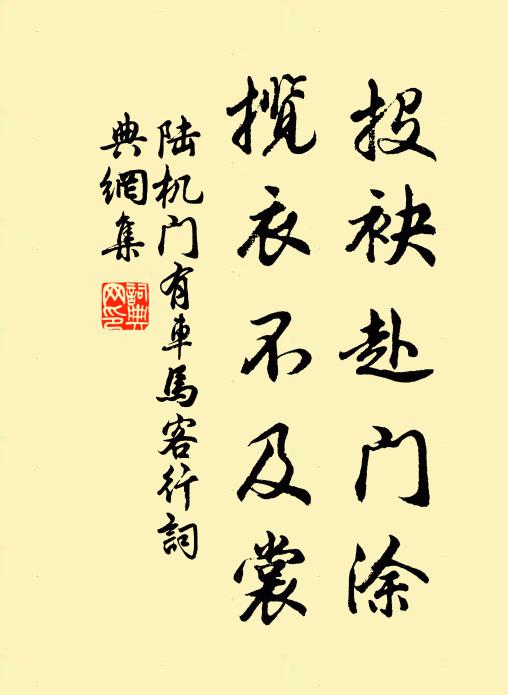 投袂赴门涂
揽衣不及裳
陆机门有車馬客行詞
典網集
詞典网印